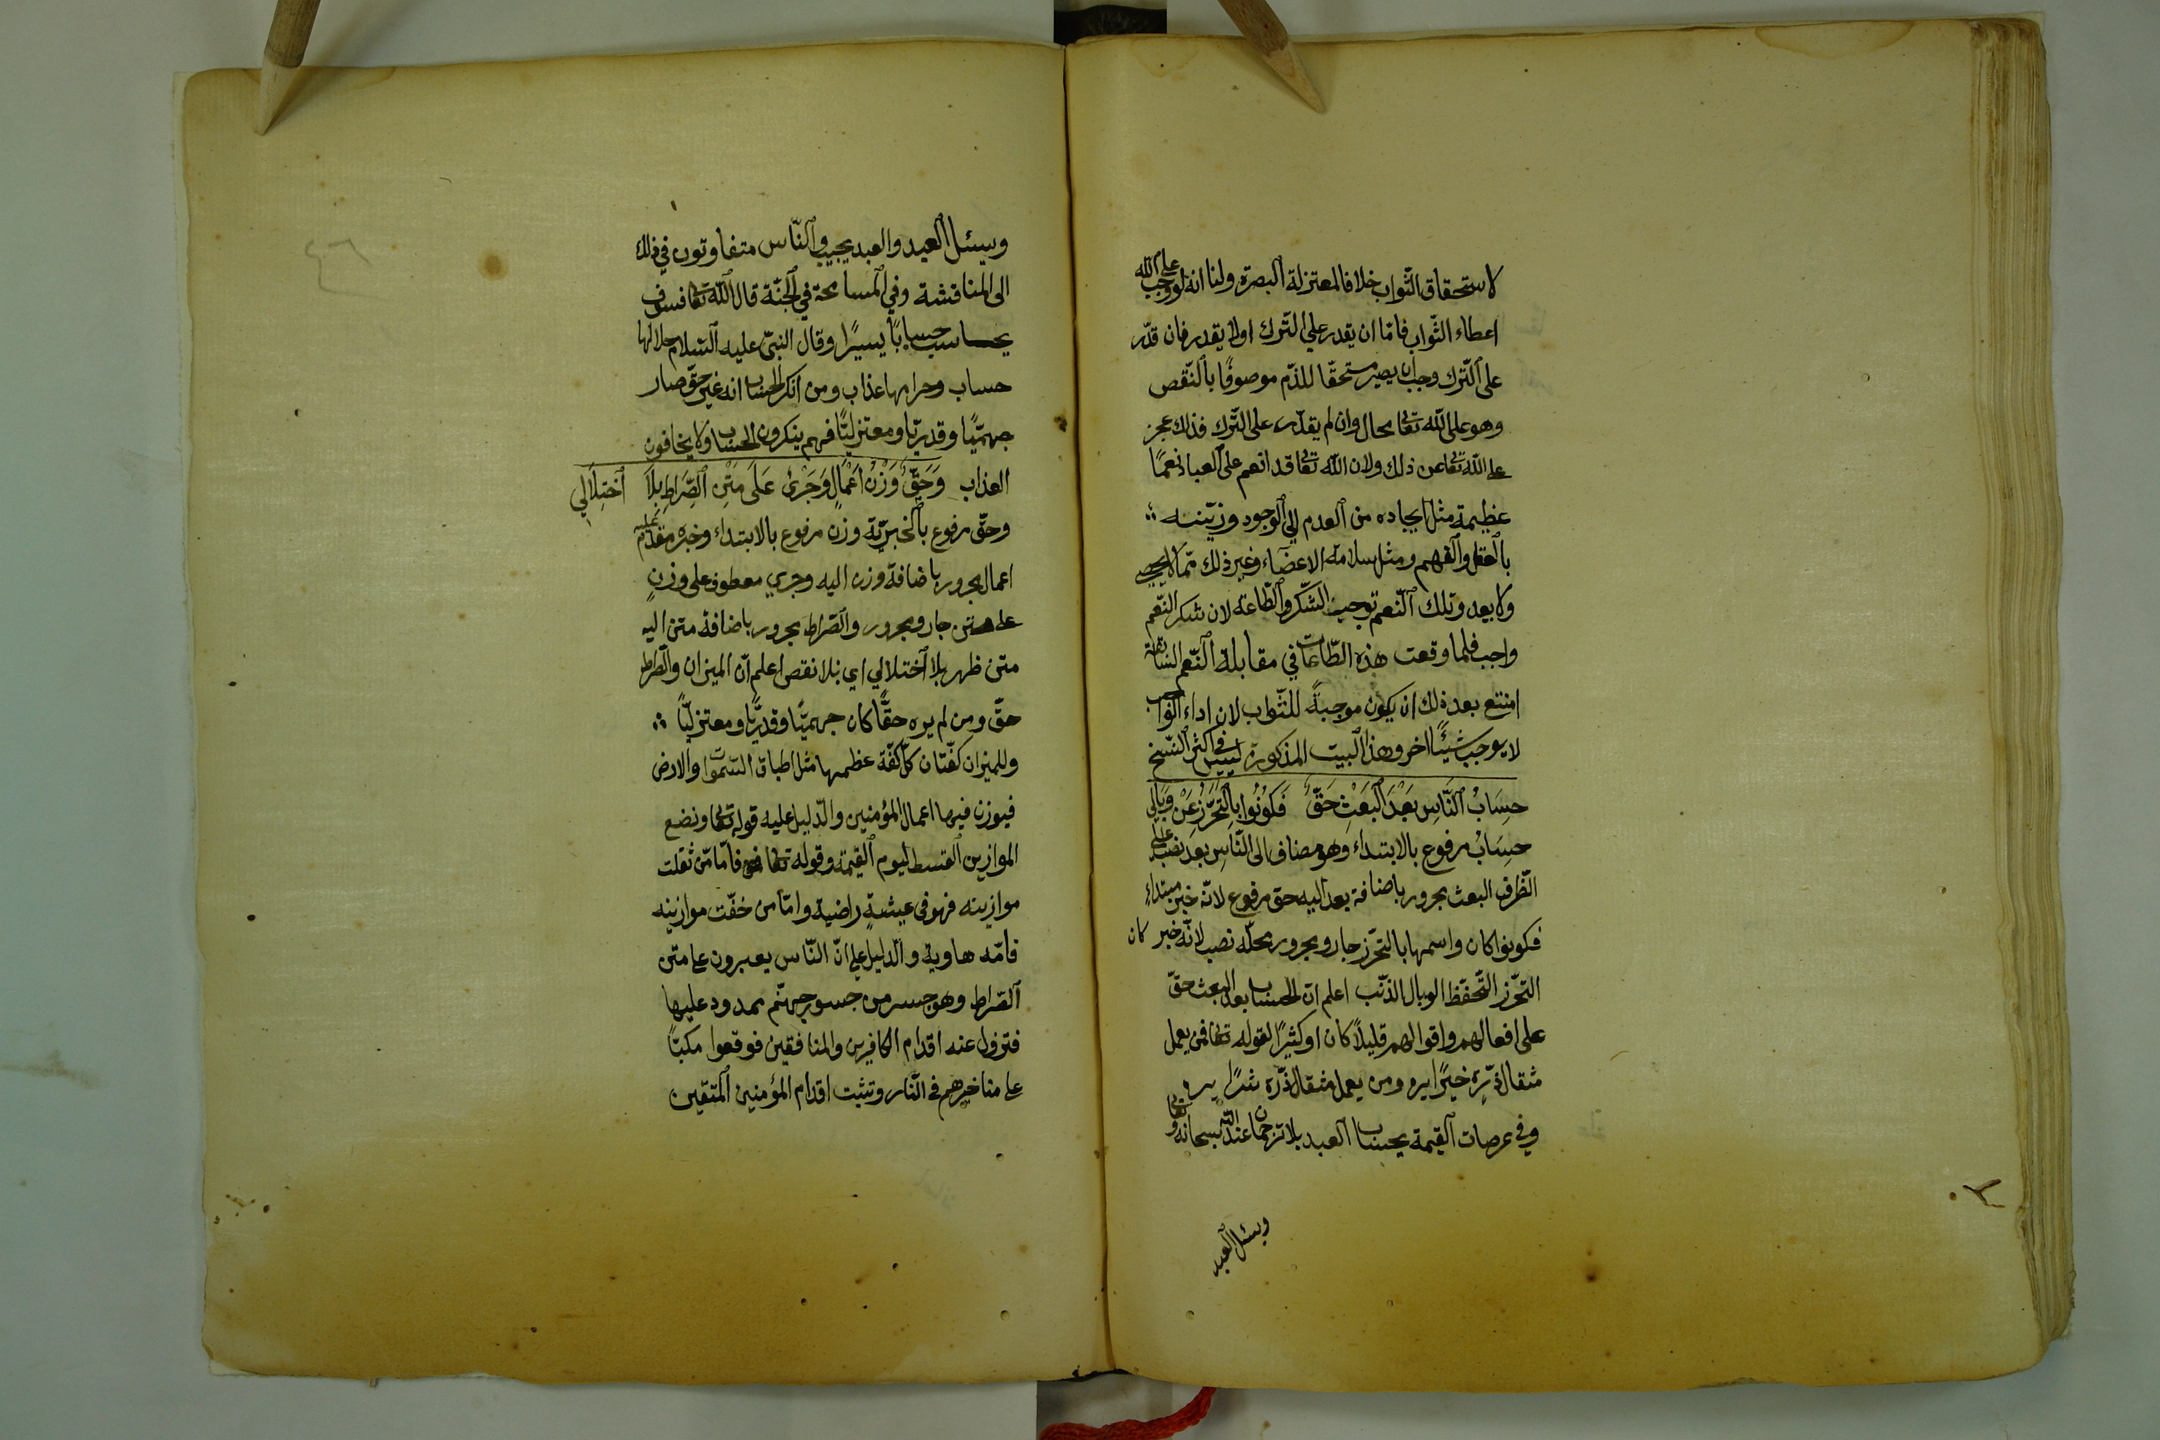 لاستحقاق الثّواب خلافا لمعتزلة البصرة ولنا انه لو وجب على الله
اعطاء الثّواب فامّا ان يقدر على التّرك اولا يقدر فان قدّر
على التّرك وجب ان يصير مستحقّا للذّم موصوفًا بالنّقص
وهو على الله تعا محال وان لم يقدّر على التّرك فذلك عجز
على الله تعا عن ذلك ولان الله تعا قد انعم على العباد نعمًا
عظيمة مثل ايجاده من العدم الى الوجود وزيّنه
بالعقل والفهم ومثل سلامة الاعضاء وغير ذلك ممّا لا يحصى
ولا يعد وتلك النّعم توجب الشّكر والطّاعة لان شكر النّعم
واجب فلما وقعت هذه الطّاعات في مقابلة النّعم السّابقة
امتنع بعد ذلك ان يكون موجبةً للثّواب لان اداء الواجب
لا يوجب شيئًا اخر وهذا البيت المذكورة ليس في اكثر النّسخ
حِسَابُ النَّاسِ بَعْدَ الْبَعْثِ حَقٌّ فَكُونُوا بِالتَّحَرُّزِ عَنْ وَبَالِي
حسابُ مرفوع بالابتداء وهو مضاف الى النّاسِ بعدَ نصب على
الظّرف البعث مجرور باضافة بعد اليه حق مرفوع لانّه خبر مبتداء
فكونوا كان واسمها بالتحرّز جار ومجرور محلّه نصب لانّه خبر كان
التحّرز التّحفّظ الوبال الذّنب اعلم انّ الحساب بعد البعث حقّ
على افعالهم واقوالهم قليلًا كان او كثيرًا لقوله تعا فمن يعمل
مثقال ذرّةٍ خيرًا يره ومن يعمل مثقال ذرّة شرًّا يره
وفي عرصات القيمة يحساب العبد بلا ترجمان عند الله سبحانه وتعا
ويسئل العبد
٤٦
ويسئل العبد والعبد يجيب والنّاس متفاوتون في ذلك
الى المناقشة وفي المسامحة في الجنّة قال الله تعا فسوف
يحاسب حسابًا يسيرًا وقال النبىّ عليه السّلام حلالها
حساب وحرامها عذاب ومن انكر الحساب انه غير حقّ صار
جهميًّا وقدريًّا ومعتزليًّا فهم ينكرون الحساب ولا يخافون
العذاب وَحَقٌّ وَزْنُ اَعْمَالٍ وَجَرْىٌ عَلَى مَتْنِ الصِّرَاطِ بِلَا اخْتِلَالِي
وحقّ مرفوع بالخبريّة وزن مرفوع بالابتداء وخبره مقدّم عليه
اعمال مجرور باضافة وزن اليه وجري معطوف على وزنٍ
على متن جار ومجرور والصّراط مجرور باضافة متن اليه
متن ظهر بلا اختلالي اي بلا نقص اعلم انّ الميزان والصّراط
حقّ ومن لم يره حقًّا كان جهميًّا وقدريًّا ومعتزليًّا
وللميزان كفّتان كلّ كفّة عظمها مثل اطباق السّموات والارض
فيوزن فيها اعمال المؤمنين والدّليل عليه قوله تعا ونضع
الموازين القسط ليوم القيمة وقوله تعا فامّا من ثقلت
موازينه فهو في عيشةٍ راضية وامّا من خفّت موازينه
فامّه هاوية والدليل على انّ النّاس يعبرون على متن
الصّراط وهو جسر من جسور جهنّم ممدود عليها
فتزول عنه اقدام الكافرين والمنافقين فوقعوا مكبًّا
على مناخرهم في النّار وتثبت اقدام المؤمنين المتّقين